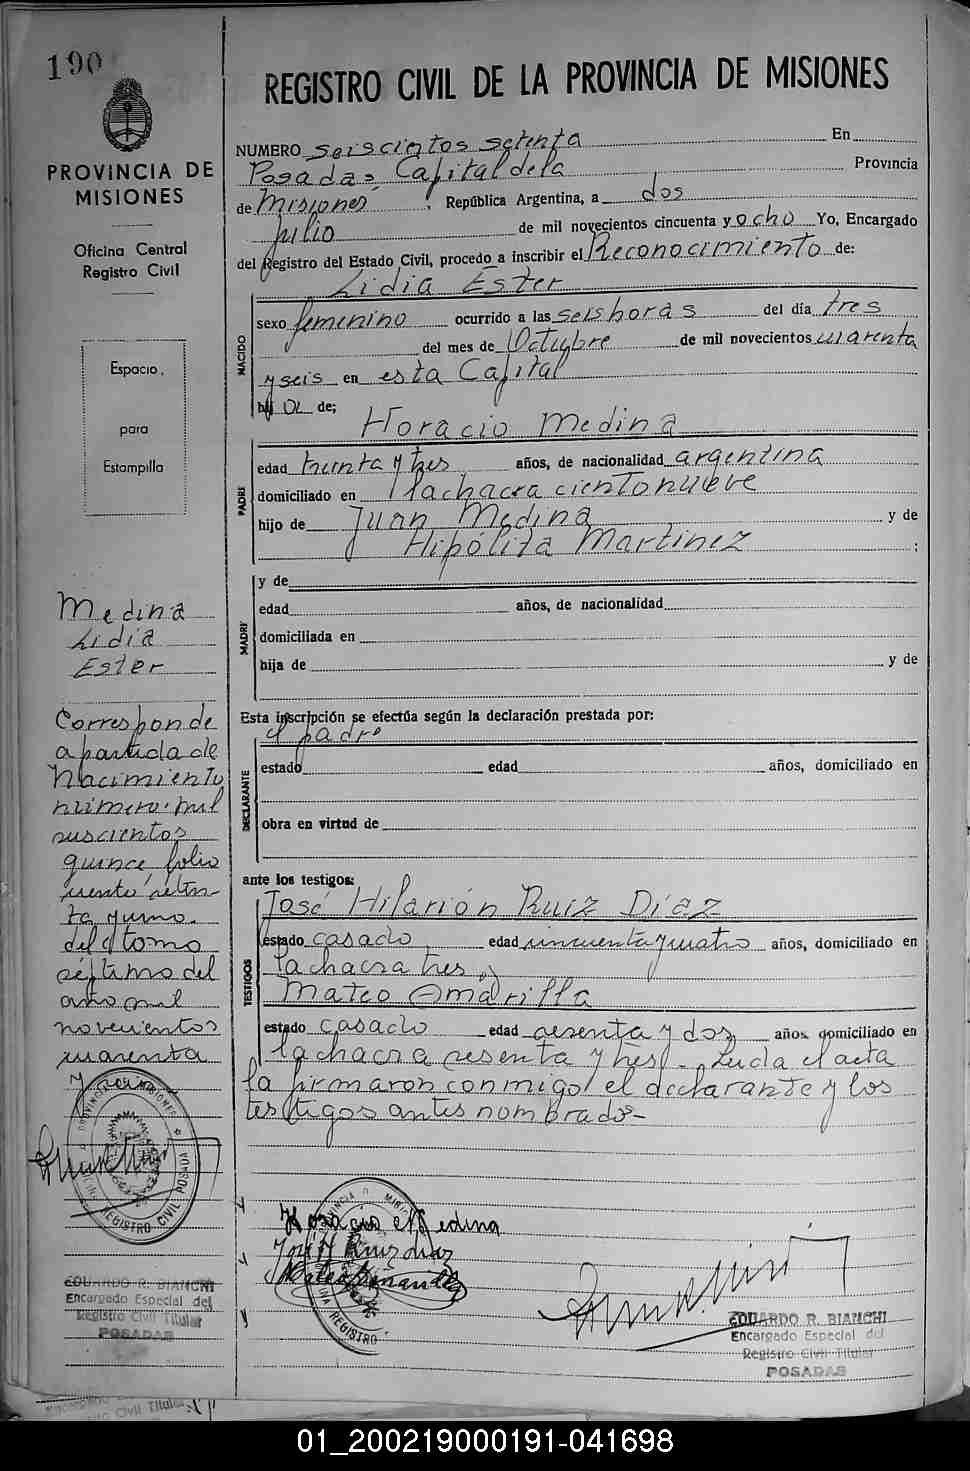 190
PROVINCIA DE
MISIONES
Oficina Central
Registro Civil
Espacio
para
Estampilla
Medina
Lidia
Ester
Corresponde
a partida de
Nacimiento
número mil
seiscientos
quince, folio
ciento seten-
ta y uno
del tomo
séptimo del
año mil
novecientos
cuarenta
y seis
EDUARDO R. BIANCHI
Encargado Especial del
Registro Civil Titular
POSADAS
REGISTRO CIVIL DE LA PROVINCIA DE MISIONES
NUMERO seiscientos setenta En
Posadas, Capital de la Provincia
de Misiones, República Argentina, a dos
julio de mil novecientos cincuenta y ocho Yo, Encargado
del Registro del Estado Civil, procedo a inscribir el Reconocimiento de:
Lidia Ester
NACIDO
sexo femenino ocurrido a las seis horas del día tres
del mes de Octubre de mil novecientos cuarenta
y seis en esta Capital
de;
Horacio Medina
PADRE
edad treinta y tres años, de nacionalidad argentina
domiciliado en la chacra ciento nueve
hijo de Juan Medina y de
Hipólita Martinez ;
MADRE
y de
edad años, de nacionalidad
domiciliada en
hija de y de
Esta inscripción se efectúa según la declaración prestada por:
el padre
DECLARANTE
estado edad años, domiciliado en
obra en virtud de
ante los testigos:
José Hilarión Ruiz Díaz
TESTIGOS
estado casado edad cincuenta y cuatro años, domiciliado en
la chacra tres y
Mateo Amarilla
estado casado edad sesenta y dos años, domiciliado en
la chacra sesenta y tres. Leída el acta
la firmaron conmigo el declarante y los
testigos antes nombrados-
Horacio Medina
José H Ruiz diaz
EDUARDO R. BIANCHI
Encargado Especial del
Registro Civil Titular
POSADAS
01_200219000191-041698